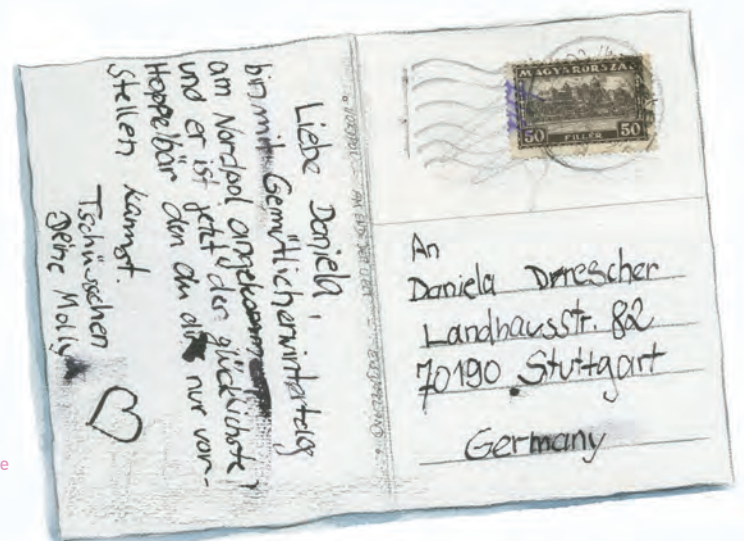 Liebe Daniela,
bin mit Gemütlicherwintertag
am Nordpol angekommen
und er ist jetzt der glücklichste
Hoppelbär den du dir nur vor-
stellen kannst.
Tschüsschen
Deine Molly
MAGYARORSZÁG
50 FILLÉR 50
An
Daniela Drescher
Landhausstr. 82
70190 Stuttgart
Germany
e